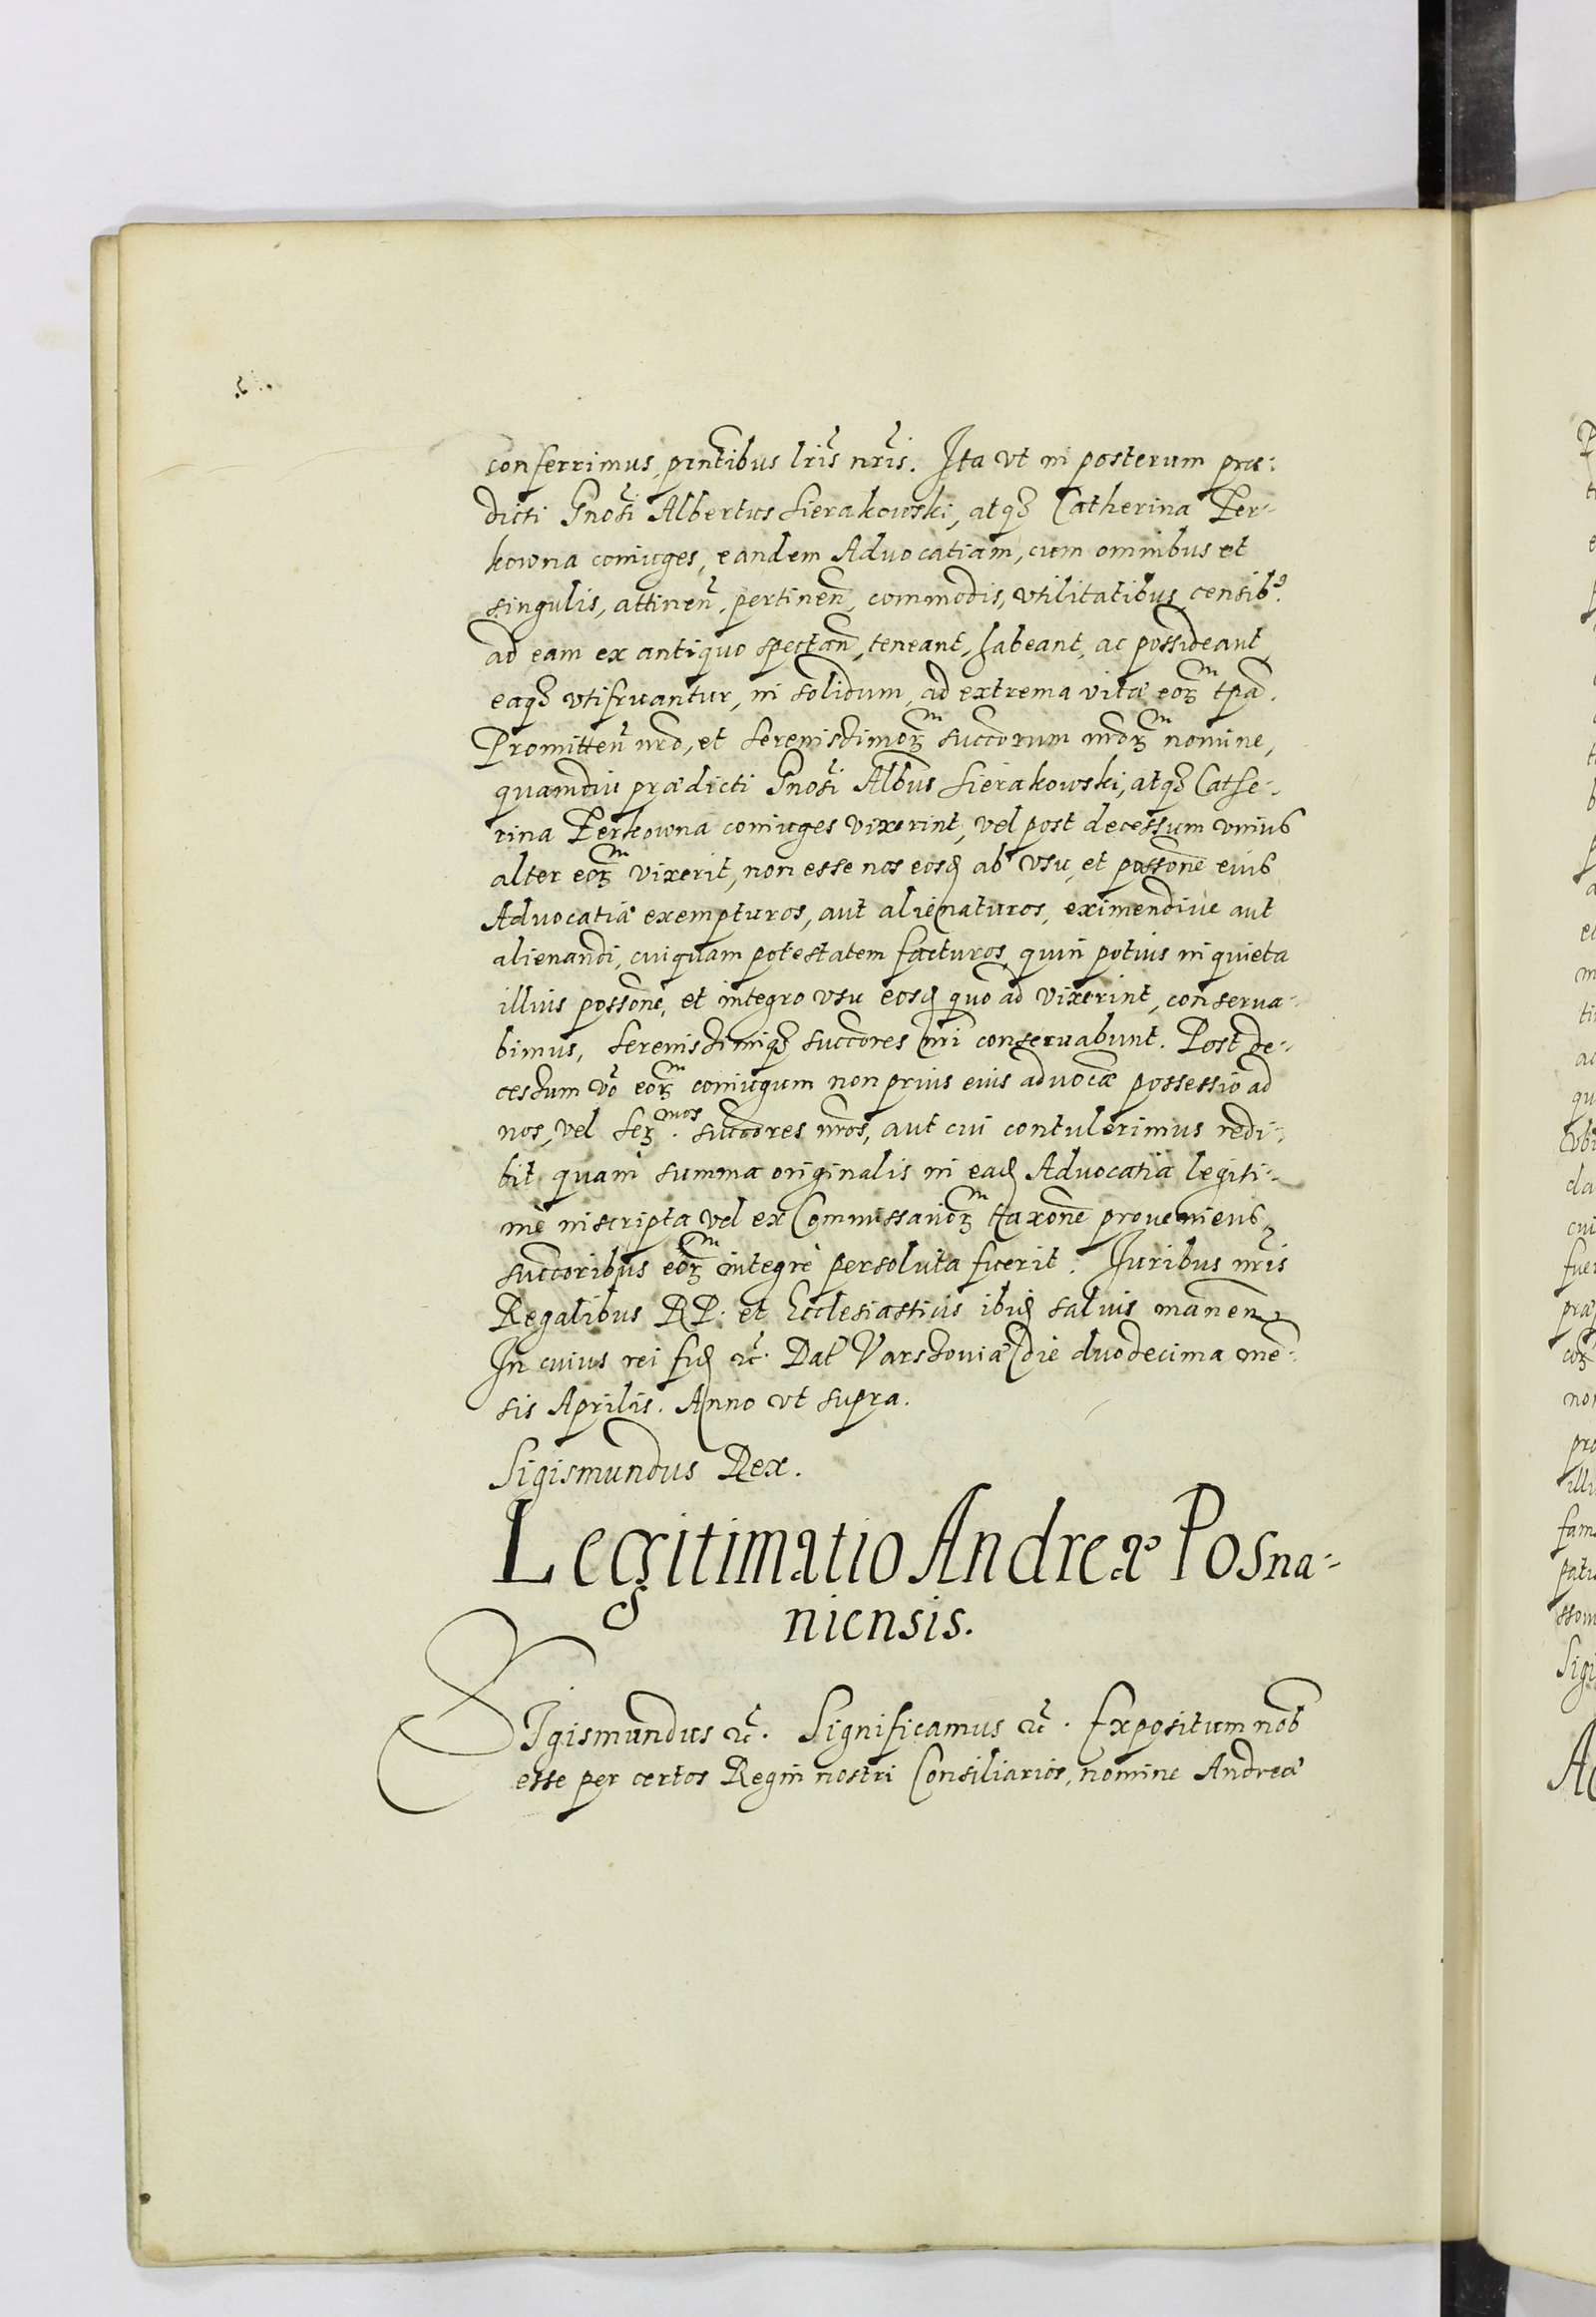 conferrimus, pñtibus lris nris. Ita vt in posterum præ:
dicti Gnosi Albertus Sierakowski, atq3 Catherina Per-
kowna coniuges, eandem Advocatiam, cum omnibus et
singulis, attineñ, pertineñ, commodis, vtilitatibus, censib9.
ad eam ex antiquo spectañ, teneant, habeant, ac possideant,
eaq3 vtifruantur, in solidum, ad extrema vitæ eorꝝ tpa.
Promitteñ nro, et Serenissimorꝝ succorum nrorꝝ nomine,
quamdiu prædicti Gnosi Albus Sierakowski, atq3 Cathe-
rina Perkowna coniuges vixerint, vel post decessum vnius
alter eorꝝ vixerit, non esse nos eosd ab vsu, et possone eius
Advocatiæ exempturos, aut alienaturos, eximendive aut
alienandi, cuiquam potestatem facturos, quin potius in quieta
illius possone, et integro vsu eosd quo ad vixerint, conserva-
bimus, Serenissimiq3 succores nri conservabunt. Post de-
cessum vo eorꝝ coniugum non prius eius advocæ possessio ad
nos, vel Ser.mos succores nros, aut cui contulerimus redi-
bit quam summa originalis in ead Advocatia legiti-
me inscripta vel ex Commissariorꝝ taxone proveniens,
succoribus eorꝝ integrè persoluta fuerit. Iuribus nris
Regalibus RP. et Ecclesiasticis ibid salvis maneñ.
In cuius rei fid &c. Dat Varssoviæ die duodecima me-
sis Aprilis. Anno vt supra.
Sigismundus Rex.
Legitimatio Andreæ Posna-
niensis.
SIgismundus &c. Significamus &c. Expositum nob
esse per certos Regni nostri Consiliarios, nomine Andreæ